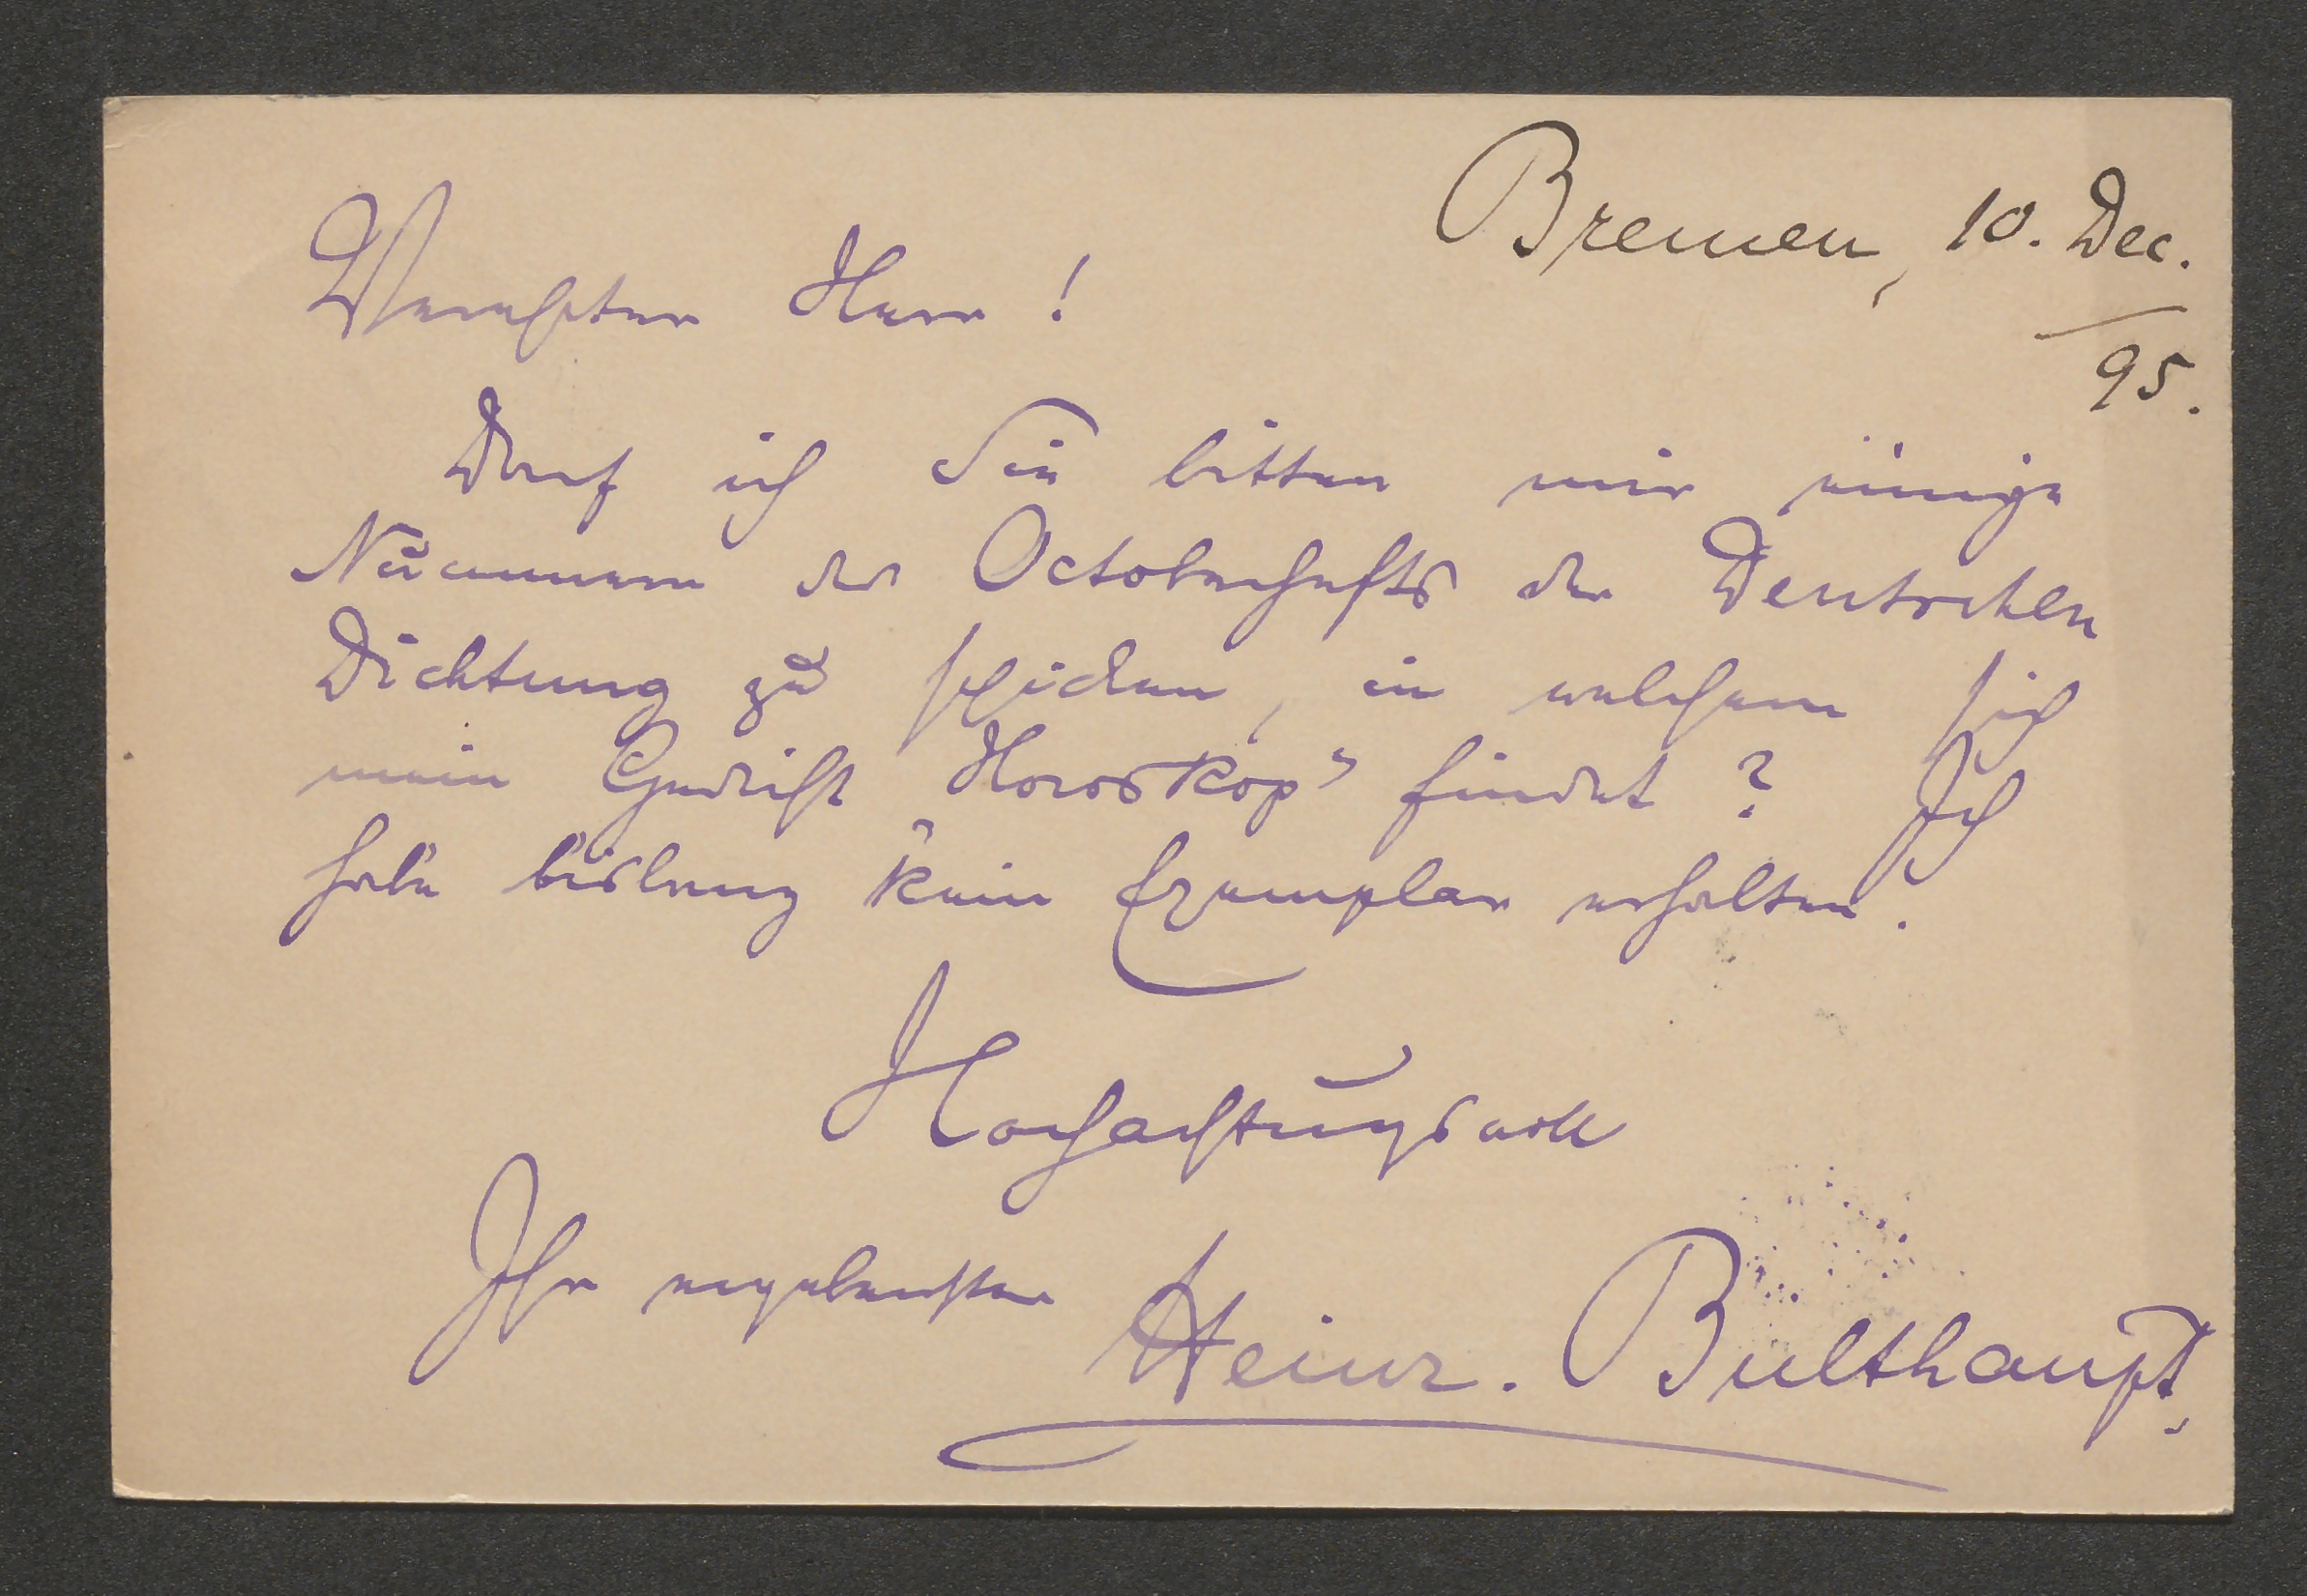 Bremen, 10. Dec.
95.
Verehrter Herr!
Darf ich Sie bitten mir einige
Nummern des Octoberhefts der Deutschen
Dichtung zu schicken, in welchem sich
mein Gedicht „Horoskop“ findet? Ich
habe bislang kein Exemplar erhalten.
Hochachtungsvoll
Ihr ergebenster
Heinr. Bulthaupt.